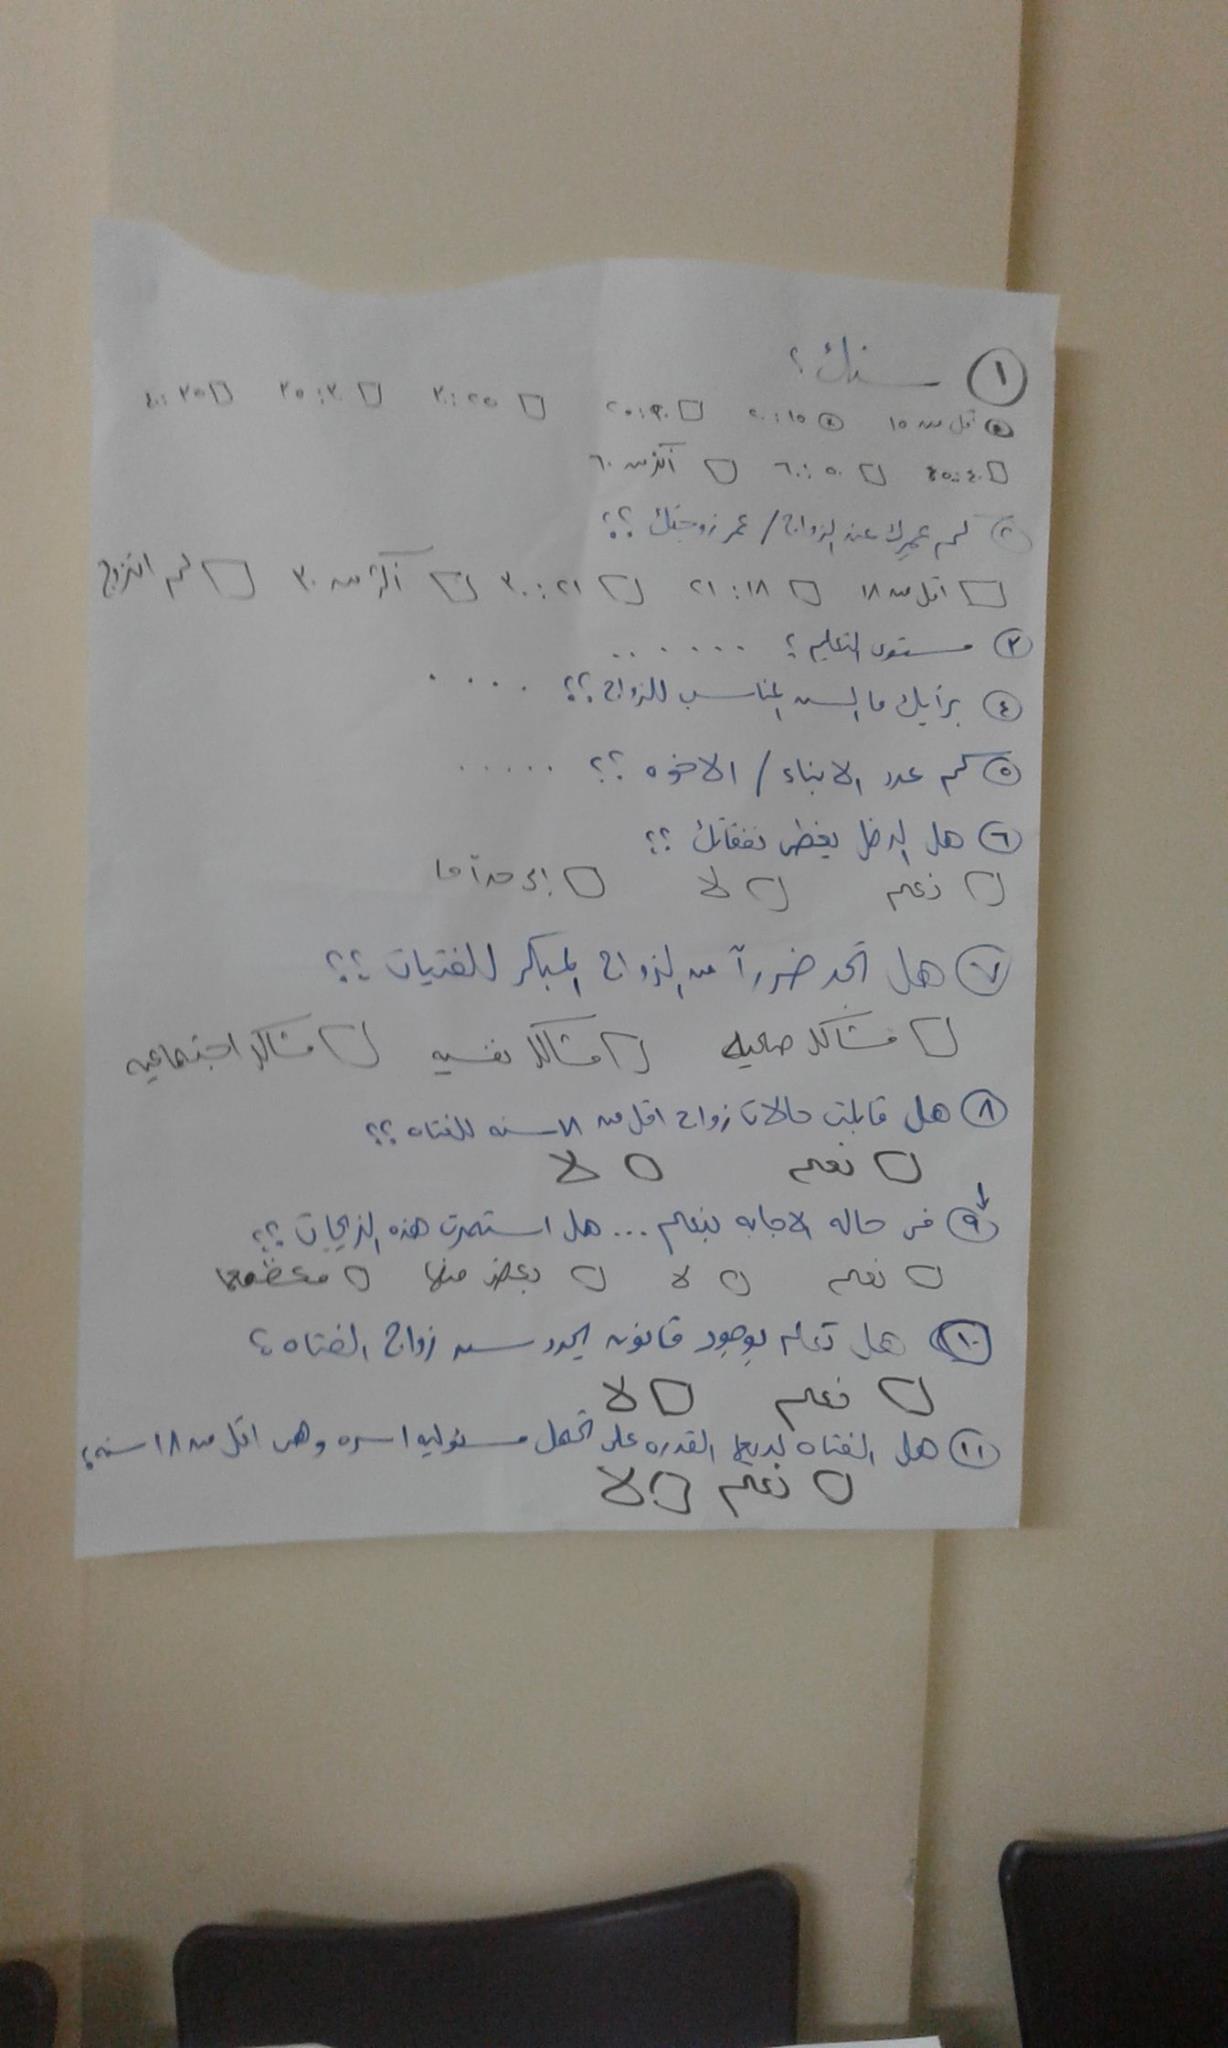 ١ سنك ؟
أقل من ١٥ ٢٠:١٥ ٢٥:٢٠ ٣٠:٢٥ ٣٥:٣٠ ٤٠:٣٥
٥٠:٤٠ ٦٠:٥٠ أكثر من ٦٠
٢ كم عمرك عند الزواج / عمر زوجتك ؟؟
اقل من ١٨ ٢١:١٨ ٣٠:٢١ أكثر من ٣٠ لم اتزوج
٣ مستوى التعليم ؟ ......
٤ برأيك ما السن المناسب للزواج ؟؟ ....
٥ كم عدد الابناء / الاخوه ؟؟ .....
٦ هل الدخل يغطى نفقاتك ؟؟
نعم لا إلى حداً ما
٧ هل تجد ضرراً من الزواج المبكر للفتيات ؟؟
مشاكل صحيه مشاكل نفسيه مشاكل اجتماعيه
٨ هل قابلت حالات زواج اقل من ١٨ سنه للفتاه ؟؟
نعم لا
٩ فى حاله الاجابه بنعم ... هل استمرت هذه الزيجات ؟؟
نعم لا بعض منها معظمها
١٠ هل تعلم بوجود قانون يحدد سن زواج الفتاه ؟
نعم لا
١١ هل الفتاه لديها القدره على تحمل مسئوليه اسره وهى اقل من ١٨ سنه ؟
نعم لا